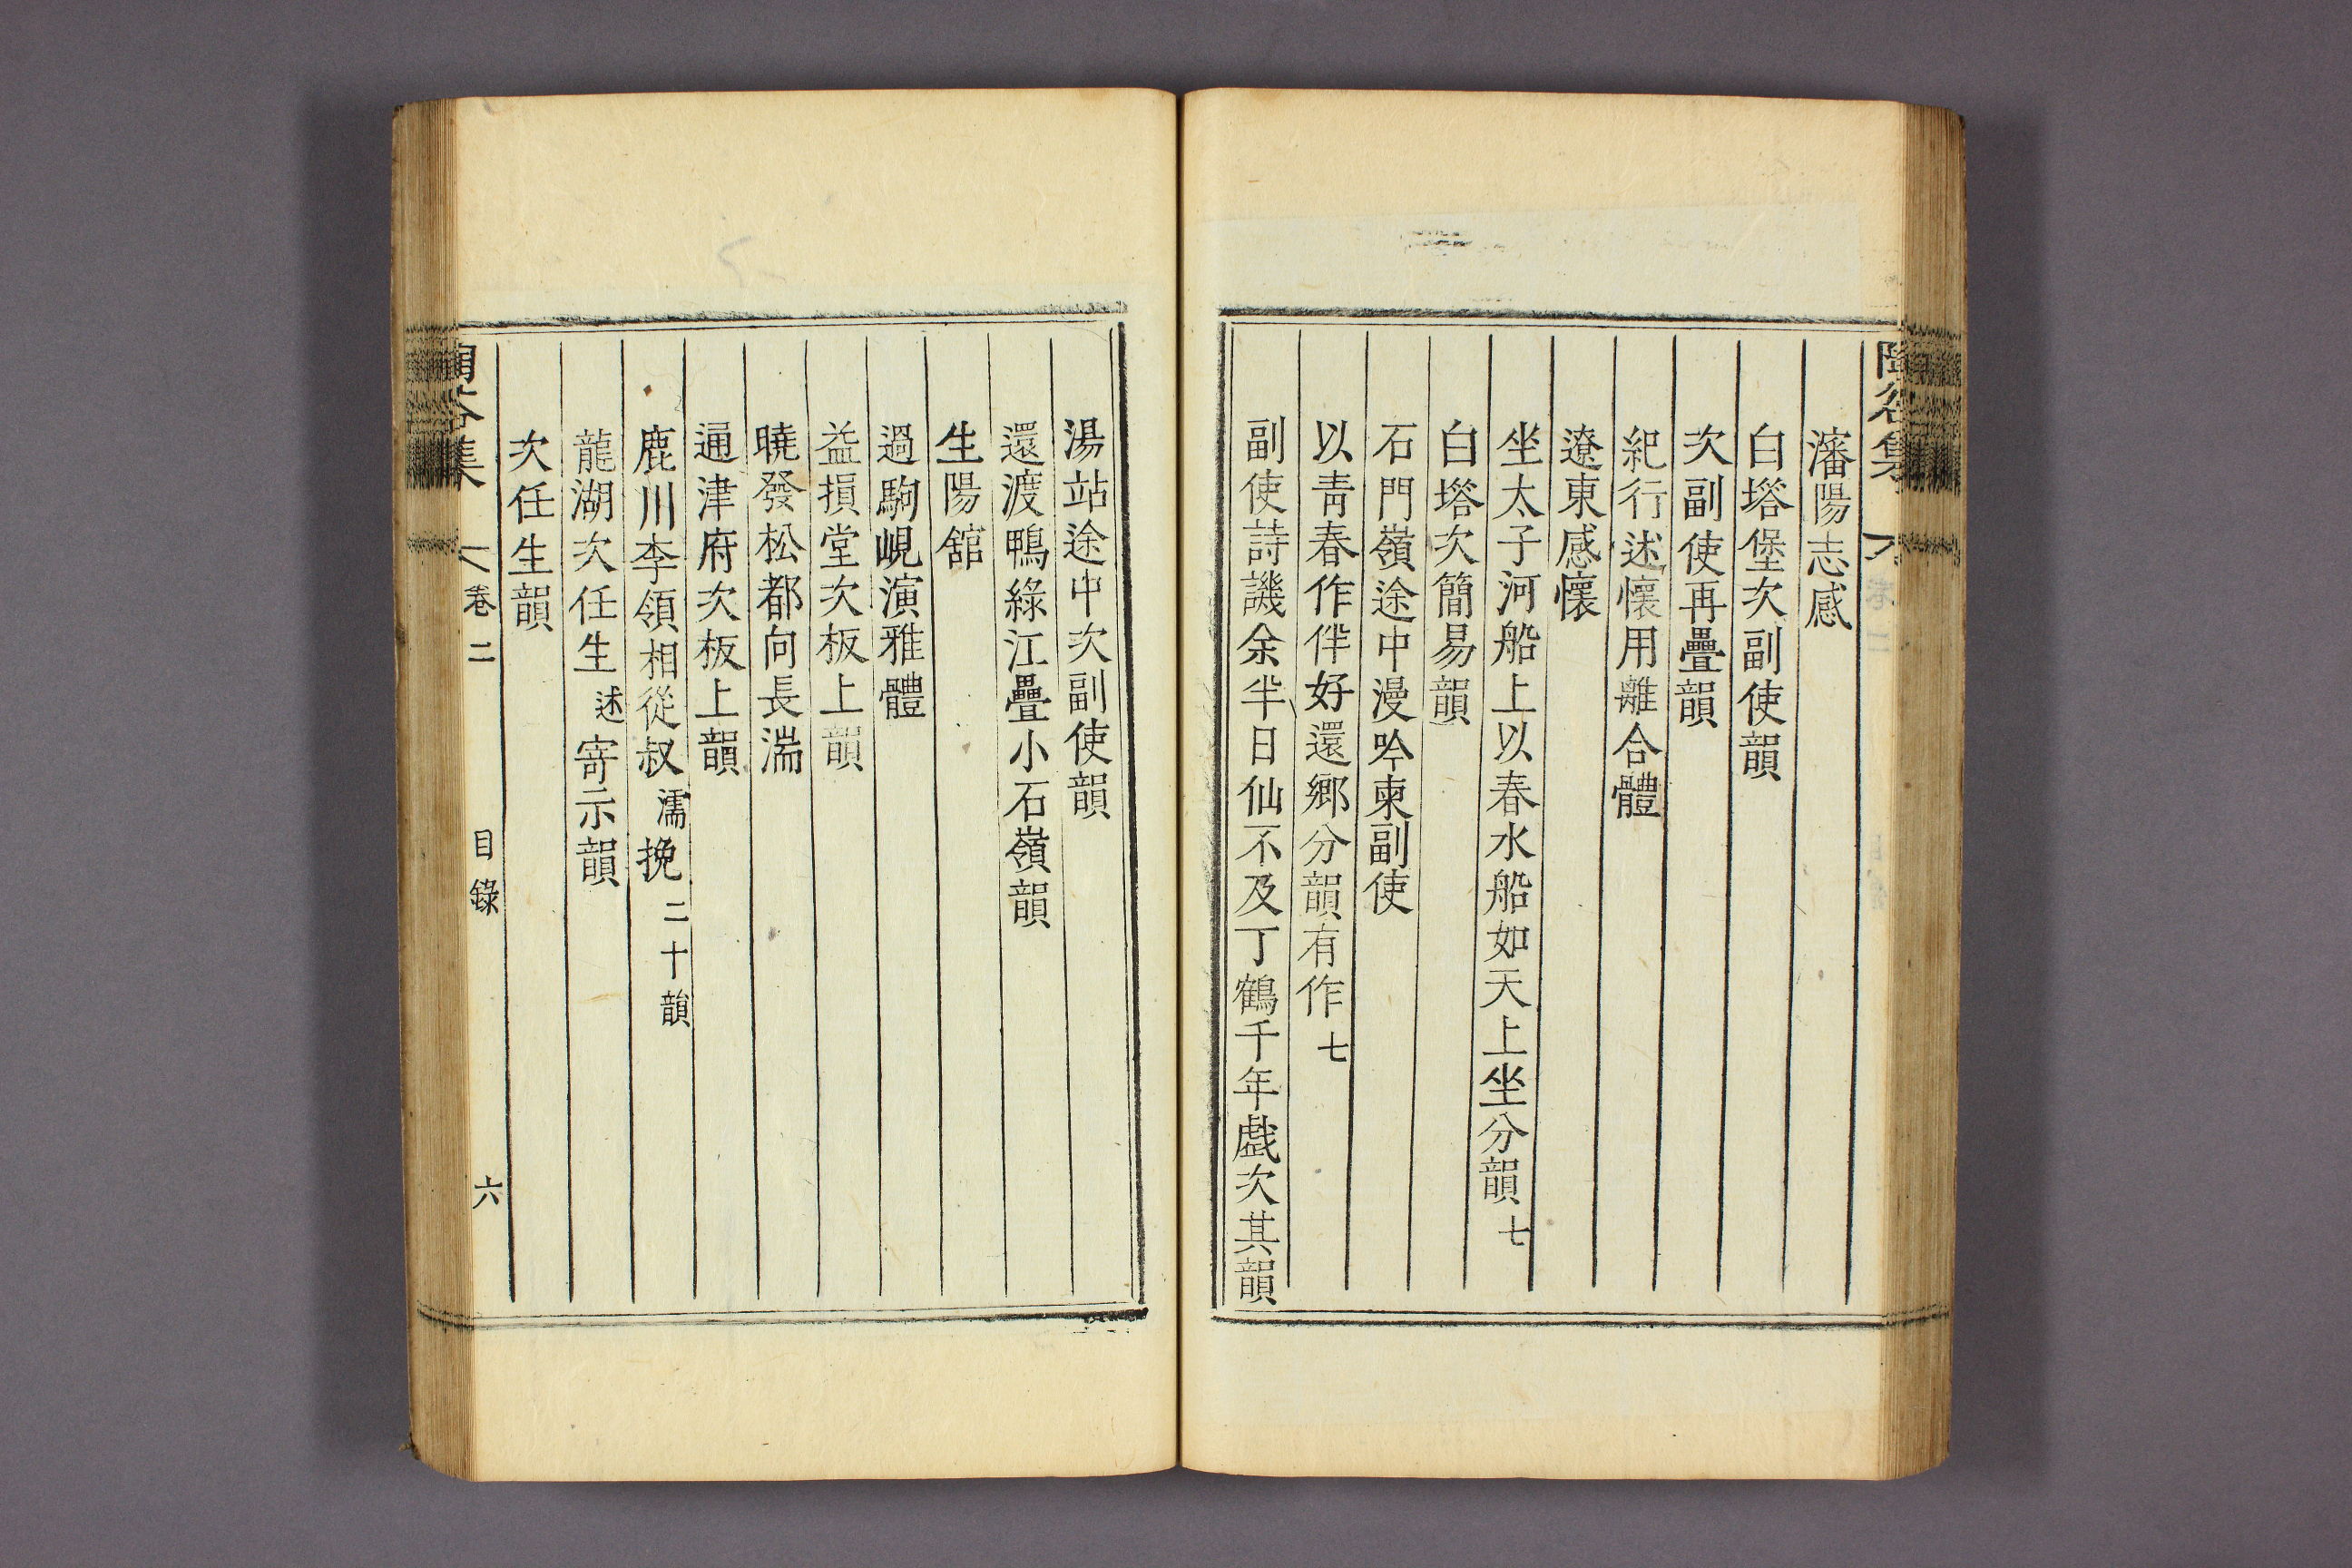 瀋陽志感
白塔堡次副使韻
次副使再疊韻
紀行述懷用離合體
遼東感懷
坐太子河船上以春水船如天上坐分韻 七
白塔次簡易韻
石門嶺途中漫吟柬副使
以靑春作伴好還鄉分韻有作 七
副使詩譏余半日仙不及丁鶴千年戱次其韻
湯站途中次副使韻
還渡鴨綠江疊小石嶺韻
生陽舘
過駒峴演雅體
益損堂次板上韻
曉發松都向長湍
通津府次板上韻
鹿川李領相從叔 濡 挽 二十韻
龍湖次任生 述 寄示韻
次任生韻
集 卷二 目錄 六